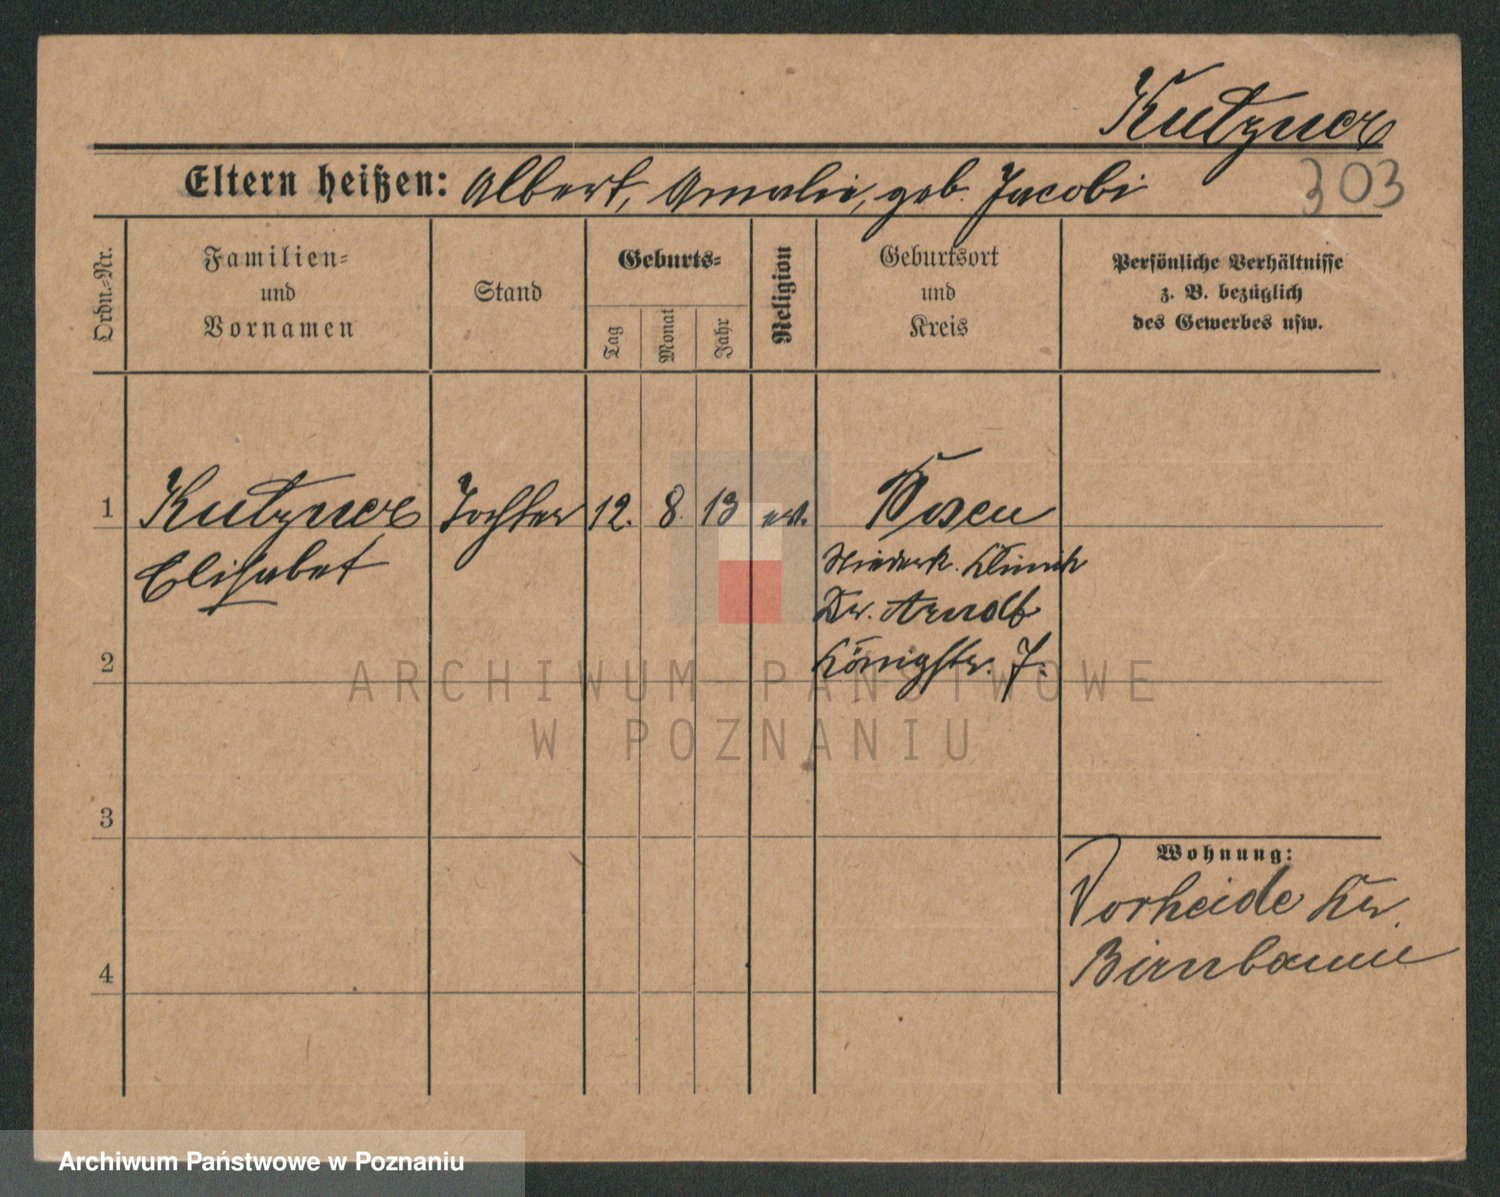 Kutzner
303
Eltern heißen: Albert, Amalie, geb. Jacobi
Ordn.-Nr.
Familien-
und
Vornamen
Stand
Geburts-
Tag
Monat
Jahr
Religion
Geburtsort
und
Kreis
Persönliche Verhältnisse
z. B. bezüglich
des Gewerbes usw.
1 Kutzner Tochter 12. 8. 13 ev. Posen
Elisabet
Klinik
Dr.
Königstr. 7.
2
ARCHIWUM PAŃSTWOWE
W POZNANIU
3
Wohnung:
Vorheide Kr.
Birnbaum
4
Archiwum Państwowe w Poznaniu